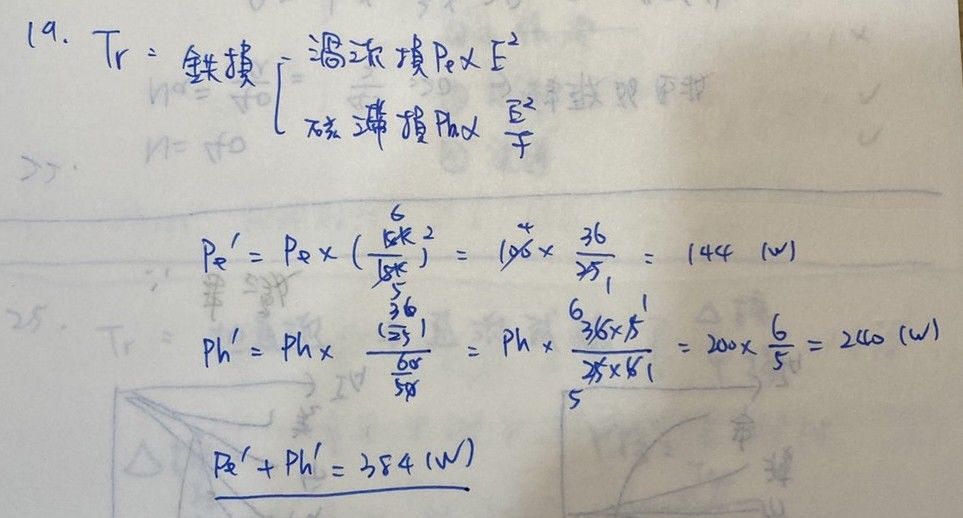 19. Tr = 鉄損 渦流損 Pe ∝ E²
磁滯損 Ph ∝ E²/f
Pe' = Pe × (6/5)² = 100 × 36/25 = 144 (W)
Ph' = Ph × (36/25)/(60/50) = Ph × (36×5)/(25×6) = 200 × 6/5 = 240 (W)
Pe' + Ph' = 384 (W)